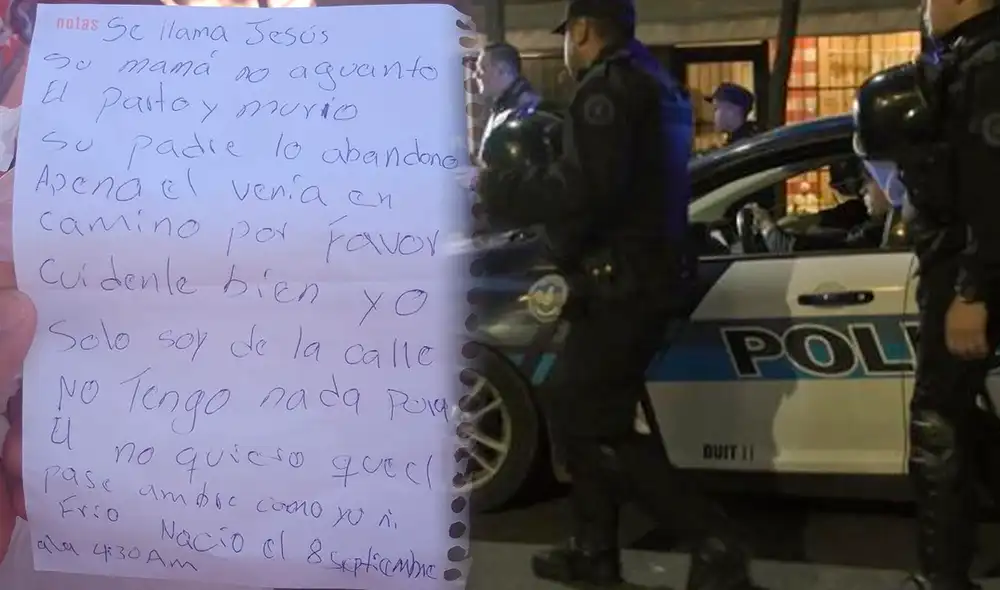 notas
Se llama Jesús
su mamá no aguanto
El parto y murio
su padre lo abandono
Apena el venía en
camino por favor
Cuidenle bien yo
Solo soy de la calle
NO Tengo nada para
El no quiero que el
pase ambre como yo ni
Frio Nacio el 8 septiembre
a la 4:30 Am
POLI
DUIT